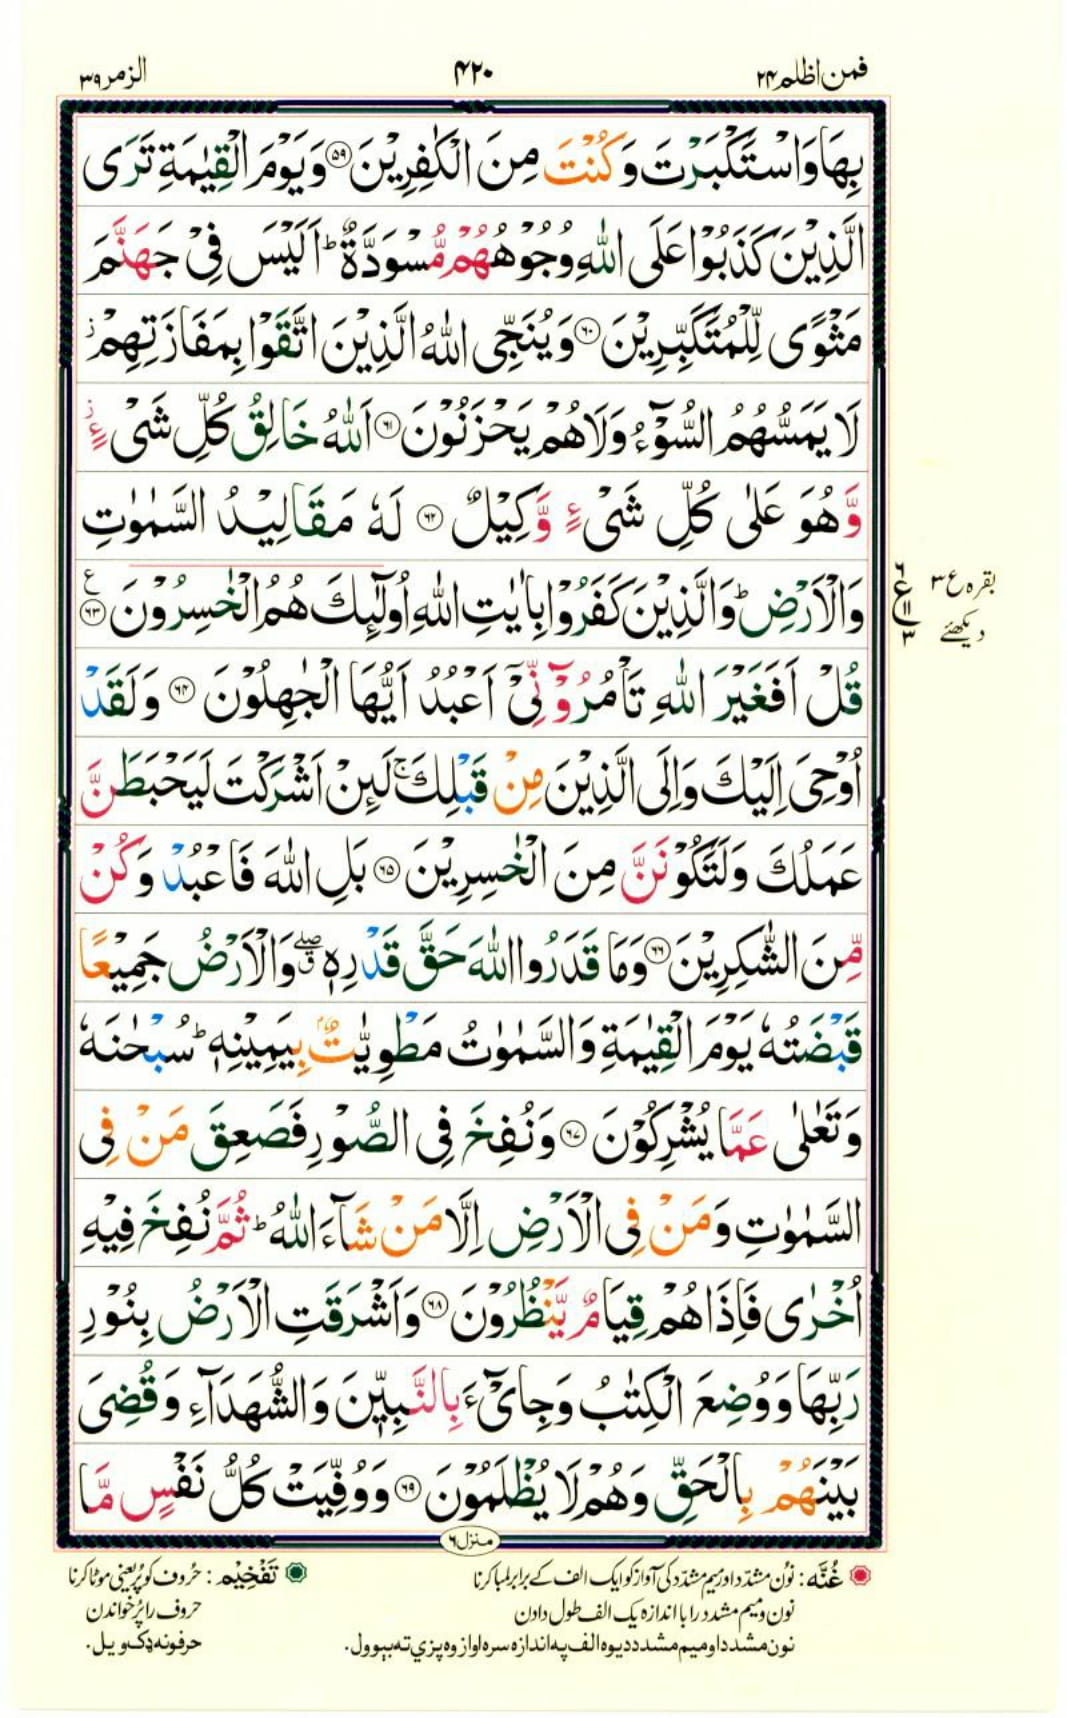 فمن اظلم ۲۴
۴۲۰
الزمر ۳۹
بِهَا وَاسْتَكْبَرْتَ وَكُنْتَ مِنَ الْكٰفِرِيْنَ ۵۹ وَيَوْمَ الْقِيٰمَةِ تَرَى
الَّذِيْنَ كَذَبُوْا عَلَى اللّٰهِ وُجُوْهُهُمْ مُّسْوَدَّةٌ ؕ اَلَيْسَ فِيْ جَهَنَّمَ
مَثْوًى لِّلْمُتَكَبِّرِيْنَ ۶۰ وَيُنَجِّى اللّٰهُ الَّذِيْنَ اتَّقَوْا بِمَفَازَتِهِمْ ز
لَا يَمَسُّهُمُ السُّوْٓءُ وَلَا هُمْ يَحْزَنُوْنَ ۶۱ اَللّٰهُ خَالِقُ كُلِّ شَىْءٍ ز
وَّهُوَ عَلٰى كُلِّ شَىْءٍ وَّكِيْلٌ ۶۲ لَهٗ مَقَالِيْدُ السَّمٰوٰتِ
وَالْاَرْضِ ؕ وَالَّذِيْنَ كَفَرُوْا بِاٰيٰتِ اللّٰهِ اُولٰٓئِكَ هُمُ الْخٰسِرُوْنَ ع ۶۳
بقره ع ۳ دیکھئے
۶ ع ۱۱ ۳
قُلْ اَفَغَيْرَ اللّٰهِ تَاْمُرُوْٓنِّيْٓ اَعْبُدُ اَيُّهَا الْجٰهِلُوْنَ ۶۴ وَلَقَدْ
اُوْحِىَ اِلَيْكَ وَاِلَى الَّذِيْنَ مِنْ قَبْلِكَ ۚ لَئِنْ اَشْرَكْتَ لَيَحْبَطَنَّ
عَمَلُكَ وَلَتَكُوْنَنَّ مِنَ الْخٰسِرِيْنَ ۶۵ بَلِ اللّٰهَ فَاعْبُدْ وَكُنْ
مِّنَ الشّٰكِرِيْنَ ۶۶ وَمَا قَدَرُوا اللّٰهَ حَقَّ قَدْرِهٖ ۖ ق وَالْاَرْضُ جَمِيْعًا
قَبْضَتُهٗ يَوْمَ الْقِيٰمَةِ وَالسَّمٰوٰتُ مَطْوِيّٰتٌۢ بِيَمِيْنِهٖ ؕ سُبْحٰنَهٗ
وَتَعٰلٰى عَمَّا يُشْرِكُوْنَ ۶۷ وَنُفِخَ فِى الصُّوْرِ فَصَعِقَ مَنْ فِى
السَّمٰوٰتِ وَمَنْ فِى الْاَرْضِ اِلَّا مَنْ شَآءَ اللّٰهُ ؕ ثُمَّ نُفِخَ فِيْهِ
اُخْرٰى فَاِذَا هُمْ قِيَامٌ يَّنْظُرُوْنَ ۶۸ وَاَشْرَقَتِ الْاَرْضُ بِنُوْرِ
رَبِّهَا وَوُضِعَ الْكِتٰبُ وَجِاىْٓءَ بِالنَّبِيّٖنَ وَالشُّهَدَآءِ وَقُضِىَ
بَيْنَهُمْ بِالْحَقِّ وَهُمْ لَا يُظْلَمُوْنَ ۶۹ وَوُفِّيَتْ كُلُّ نَفْسٍ مَّا
منزل ۶
غُنَّه : نون مشدّد اور میم مشدّد کی آواز کو ایک الف کے برابر لمبا کرنا
نون و میم مشدد را با اندازه یک الف طول دادن
نون مشدد او میم مشدد دیوه الف په اندازه سره اواز وه پزي ته بیوول.
تَفْخِيْم : حُروف کو پُر یعنی موٹا کرنا
حروف را پُر خواندن
حرفونه ډک ویل.